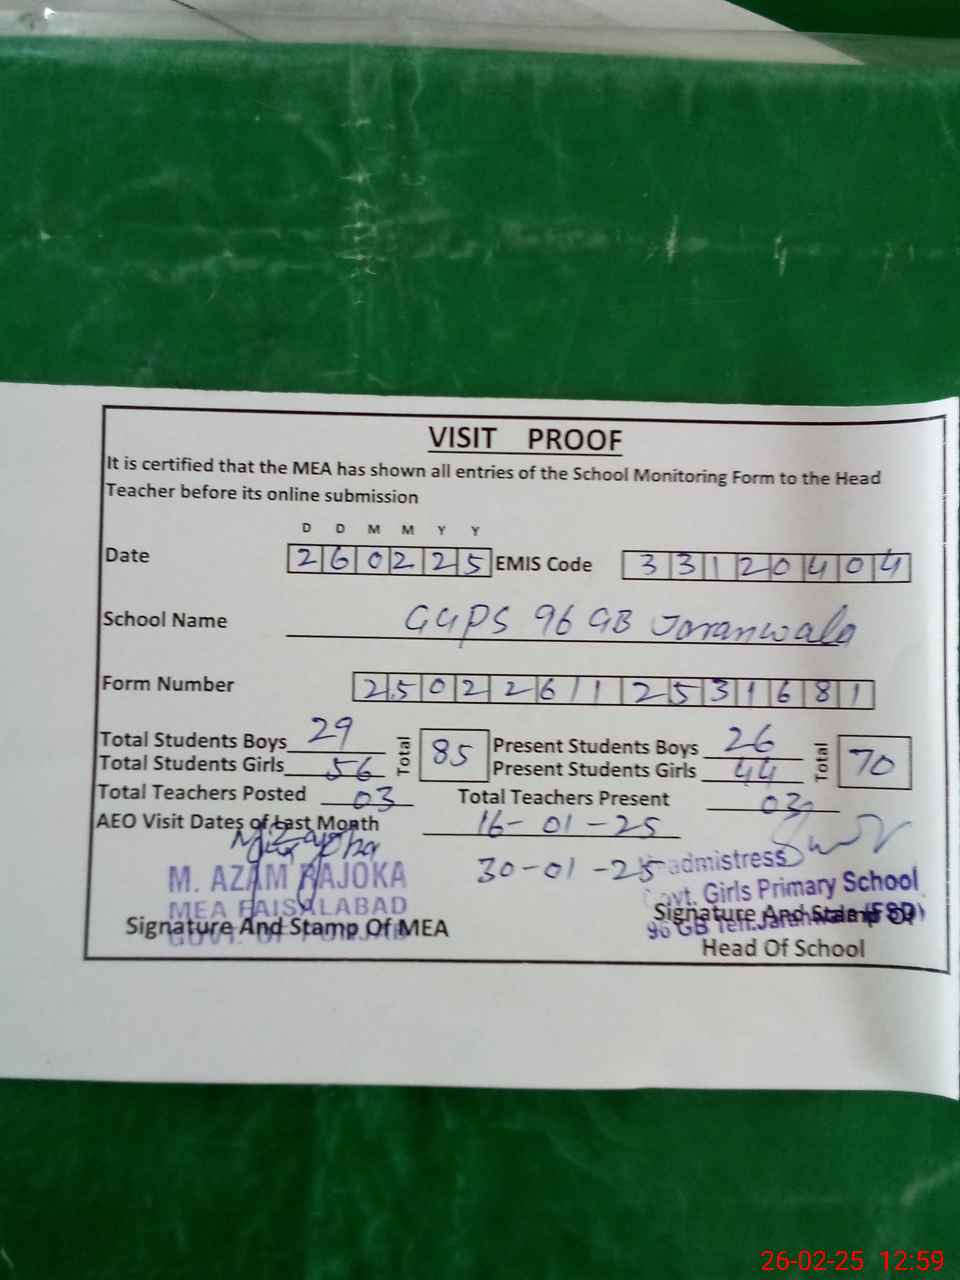 VISIT PROOF
It is certified that the MEA has shown all entries of the School Monitoring Form to the Head
Teacher before its online submission
D D M M Y Y
Date 260225 EMIS Code 33120404
School Name GGPS 96 GB Jaranwala
Form Number 250226112531681
Total Students Boys 29 Total 85 Present Students Boys 26 Total 70
Total Students Girls 56 Present Students Girls 44
Total Teachers Posted 03 Total Teachers Present 03
AEO Visit Dates of Last Month 16-01-25
30-01-25
M. AZAM RAJOKA
MEA FAISALABAD
GOVT. OF PUNJAB
Signature And Stamp Of MEA
Headmistress
Govt. Girls Primary School
96 GB Teh: Jaranwala (FSD)
Signature And Stamp Of
Head Of School
26-02-25 12:59